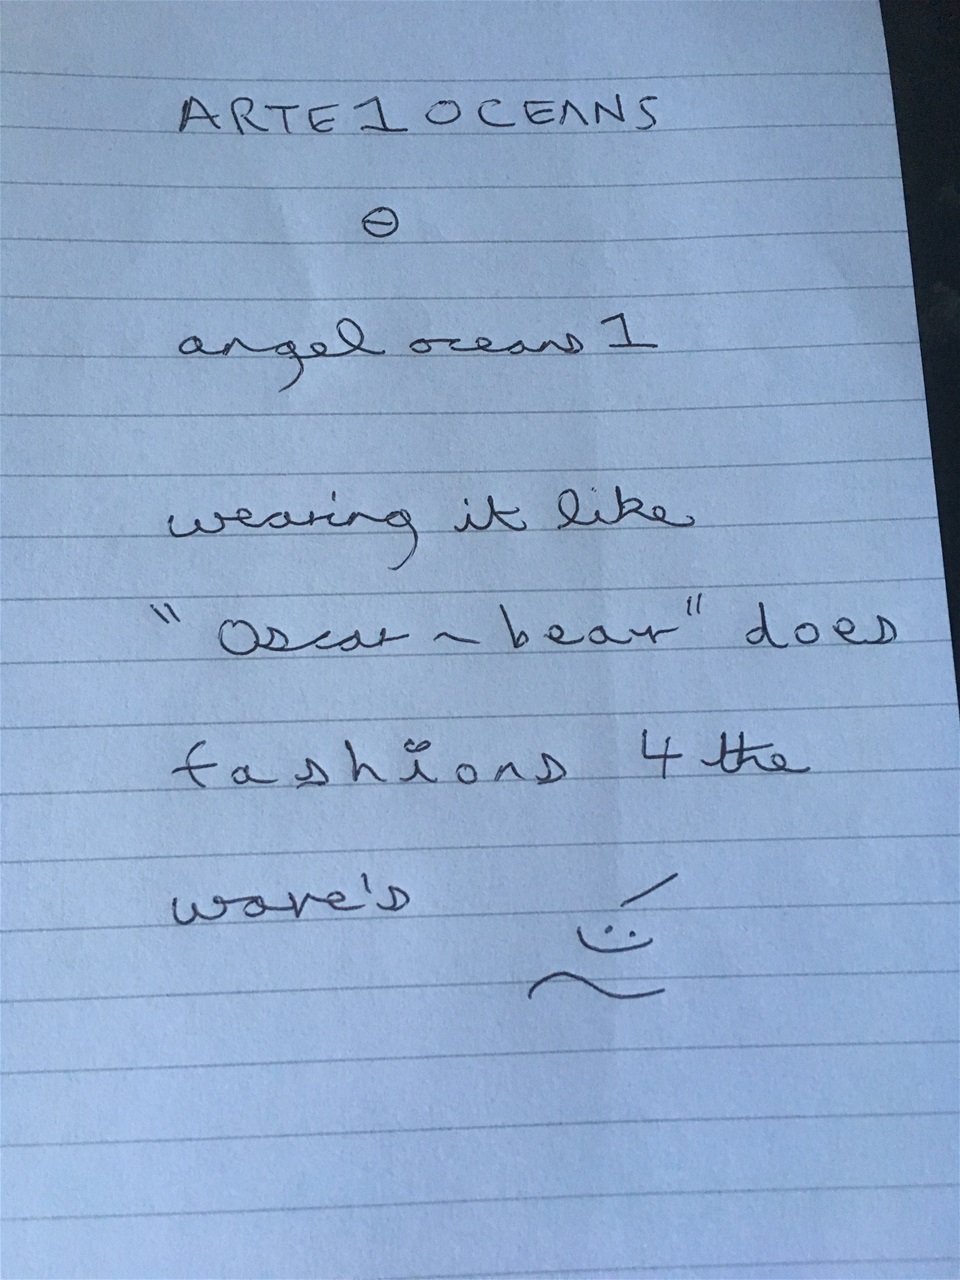 ARTE1 OCEANS
⊖
angel oceans 1
wearing it like
"Oscar ~ bear" does
fashions 4 the
wave's